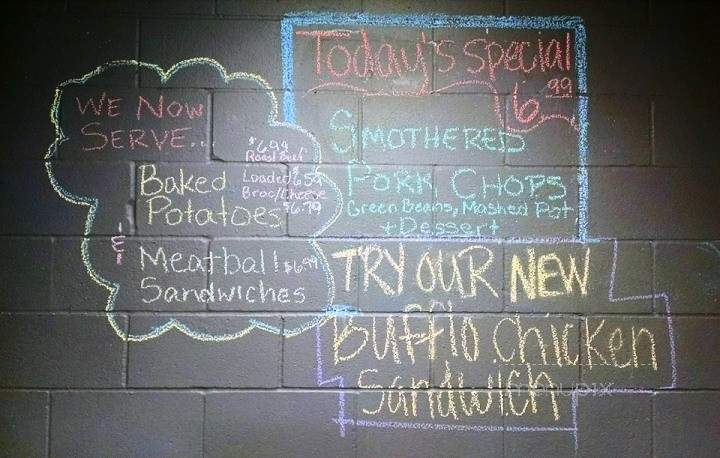 WE NOW
SERVE..
$6.99
Roast Beef
Baked
Potatoes
Loaded $6.59
Broc/Cheese
$6.79
&
Meatball $6.99
Sandwiches
Today's special
6.99
SMOTHERED
PORK CHOPS
Green Beans, Mashed Pot.
+ Dessert
TRY OUR NEW
Bufflo Chicken
Sandwich